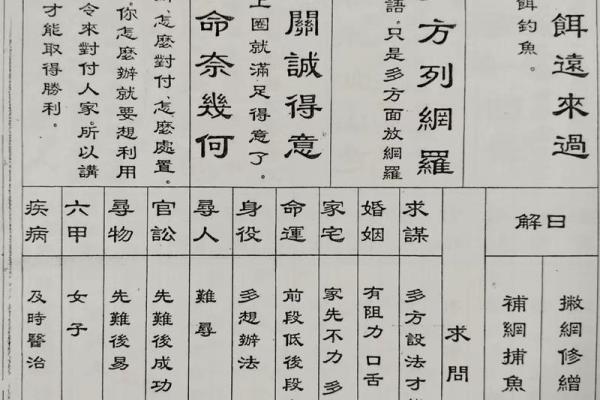 餌遠來過
餌釣魚。
方列網羅
語。只是多方面放網羅
關誠得意
上圈就滿足得意了。
命奈幾何
怎麼對付,怎麼處置。
你怎麼辦就要想利用
令來對付人家。所以講
才能取得勝利。
日解
撇網修繒
補網捕魚
求問
求謀
多方設法才
婚姻
有阻力 口舌
家宅
家先不力 多
命運
前段低後段
身役
多想辦法
尋人
難尋
官訟
先難後成功
尋物
先難後易
六甲
女子
疾病
及時醫治